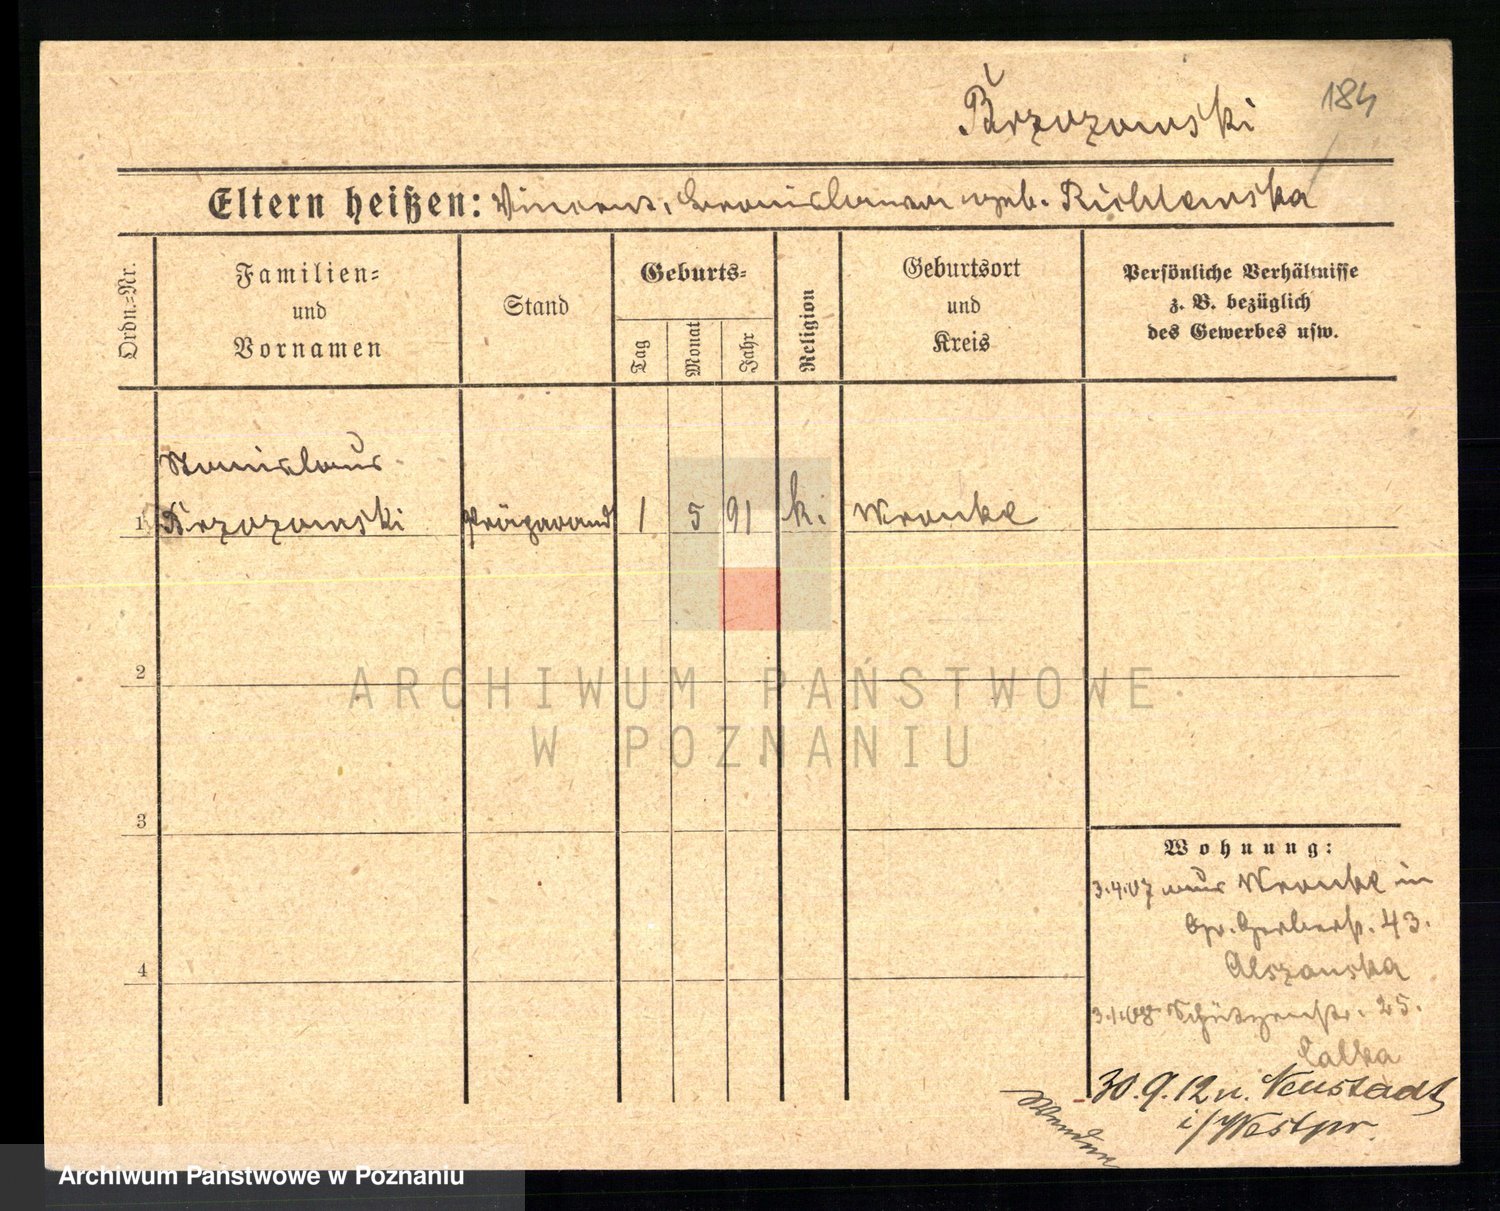 Brzozowski
184
Eltern heißen: Vincent, Bronislawa geb. Richlewska
Ordn.=Nr.
Familien=
und
Vornamen
Stand
Geburts=
Tag
Monat
Jahr
Religion
Geburtsort
und
Kreis
Persönliche Verhältnisse
z. B. bezüglich
des Gewerbes usw.
Stanislaus
1 Brzozowski Präparand 1 5 91 k. Wronke
2
3
4
Wohnung:
3.4.07 aus Wronke in
Gr. Gerberst. 43.
Olszanska
Schützenstr. 25.
Calka
30.9.12 n. Neustadt
i/Westpr.
ARCHIWUM PAŃSTWOWE
W POZNANIU
Archiwum Państwowe w Poznaniu